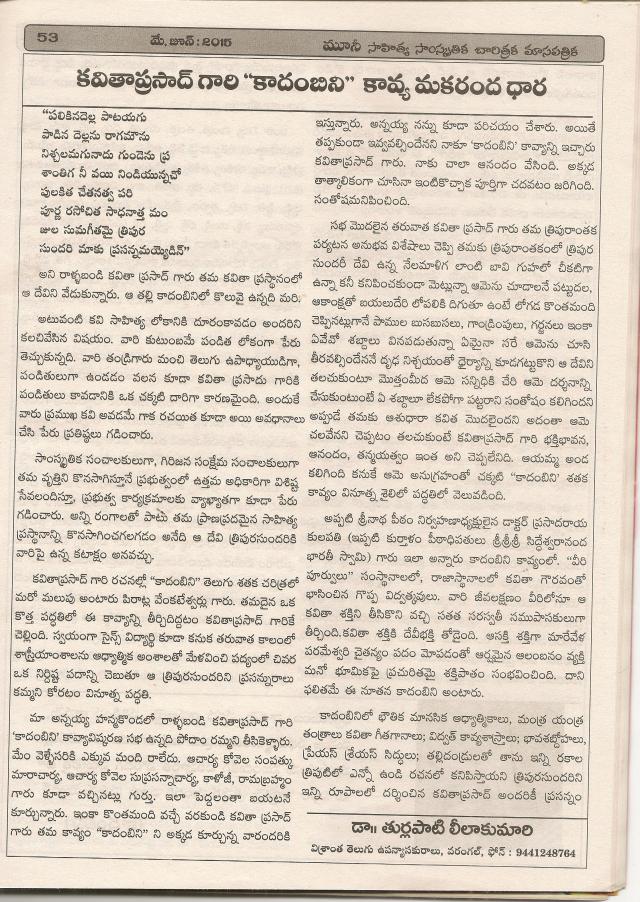 53
మే, జూన్ : 2015
మూసీ సాహిత్య సాంస్కృతిక చారిత్రక మాసపత్రిక
కవితాప్రసాద్ గారి "కాదంబిని" కావ్య మకరంద ధార
"పలికినదెల్ల పాటయగు
పాడిన దెల్లను రాగమౌను
నిశ్చలమగునాడు గుండెను ప్ర
శాంతిగ నీ వయి నిండియున్నచో
పులకిత చేతనత్వ పరి
పూర్ణ రసోచిత సాధనాత్త మం
జుల సుమగీతమై త్రిపుర
సుందరి మాకు ప్రసన్నమయ్యెడిన్"
అని రాళ్ళబండి కవితా ప్రసాద్ గారు తమ కవితా ప్రస్థానంలో
ఆ దేవిని వేడుకున్నారు. ఆ తల్లి కాదంబినిలో కొలువై ఉన్నది మరి.
అటువంటి కవి సాహిత్య లోకానికి దూరంకావడం అందరిని
కలచివేసిన విషయం. వారి కుటుంబమే పండిత లోకంగా పేరు
తెచ్చుకున్నది. వారి తండ్రిగారు మంచి తెలుగు ఉపాధ్యాయుడిగా,
పండితులుగా ఉండడం వలన కూడా కవితా ప్రసాదు గారికి
పండితులు కావడానికి ఒక చక్కటి దారిగా కారణమైంది. అందుకే
వారు ప్రముఖ కవి అవడమే గాక రచయిత కూడా అయి అవధానాలు
చేసి పేరు ప్రతిష్ఠలు గడించారు.
సాంస్కృతిక సంచాలకులుగా, గిరిజన సంక్షేమ సంచాలకులుగా
తమ వృత్తిని కొనసాగిస్తూనే ప్రభుత్వంలో ఉత్తమ అధికారిగా విశిష్ట
సేవలందిస్తూ, ప్రభుత్వ కార్యక్రమాలకు వ్యాఖ్యాతగా కూడా పేరు
గడించారు. అన్ని రంగాలతో పాటు తమ ప్రాణప్రదమైన సాహిత్య
ప్రస్థానాన్ని కొనసాగించగలగడం అనేది ఆ దేవి త్రిపురసుందరికి
వారిపై ఉన్న కటాక్షం అనవచ్చు.
కవితాప్రసాద్ గారి రచనల్లో "కాదంబిని" తెలుగు శతక చరిత్రలో
మరో మలుపు అంటారు పిరాట్ల వెంకటేశ్వర్లు గారు. తమదైన ఒక
కొత్త పద్ధతిలో ఈ కావ్యాన్ని తీర్చిదిద్దటం కవితాప్రసాద్ గారికే
చెల్లింది. స్వయంగా సైన్స్ విద్యార్థి కూడా కనుక తరువాత కాలంలో
శాస్త్రీయాంశాలను ఆధ్యాత్మిక అంశాలతో మేళవించి పద్యంలో చివర
ఒక నిర్దిష్ట పదాన్ని చెబుతూ ఆ త్రిపురసుందరిని ప్రసన్నురాలు
కమ్మని కోరటం వినూత్న పద్ధతి.
మా అన్నయ్య హన్మకొండలో రాళ్ళబండి కవితాప్రసాద్ గారి
'కాదంబిని' కావ్యావిష్కరణ సభ ఉన్నది పోదాం రమ్మని తీసికెళ్ళారు.
మేం వెళ్ళేసరికి ఎక్కువ మంది రాలేదు. ఆచార్య కోవెల సంపత్కు
మారాచార్య, ఆచార్య కోవెల సుప్రసన్నాచార్య, కాళోజీ, రామబ్రహ్మం
గారు కూడా వచ్చినట్లు గుర్తు. ఇలా పెద్దలంతా బయటనే
కూర్చున్నారు. ఇంకా కొంతమంది వచ్చే వరకుండి కవితా ప్రసాద్
గారు తమ కావ్యం "కాదంబిని" ని అక్కడ కూర్చున్న వారందరికి
ఇస్తున్నారు. అన్నయ్య నన్ను కూడా పరిచయం చేశారు. అయితే
తప్పకుండా ఇవ్వవల్సిందేనని నాకూ 'కాదంబిని' కావ్యాన్ని ఇచ్చారు
కవితాప్రసాద్ గారు. నాకు చాలా ఆనందం వేసింది. అక్కడ
తాత్కాలికంగా చూసినా ఇంటికొచ్చాక పూర్తిగా చదవటం జరిగింది.
సంతోషమనిపించింది.
సభ మొదలైన తరువాత కవితా ప్రసాద్ గారు తమ త్రిపురాంతక
పర్యటన అనుభవ విశేషాలు చెప్పి తమకు త్రిపురాంతకంలో త్రిపుర
సుందరీ దేవి ఉన్న నేలమాళిగ లాంటి బావి గుహలో చీకటిగా
ఉన్నా కనీ కనిపించకుండా మెట్లున్నా ఆమెను చూడాలనే పట్టుదల,
ఆకాంక్షతో బయలుదేరి లోపలికి దిగుతూ ఉంటే లోగడ కొంతమంది
చెప్పినట్లుగానే పాముల బుసబుసలు, గాండ్రింపులు, గర్జనలు ఇంకా
ఏవేవో శబ్దాలు వినపడుతున్నా ఏమైనా సరే ఆమెను చూసి
తీరవల్సిందేననే దృఢ నిశ్చయంతో ధైర్యాన్ని కూడగట్టుకొని ఆ దేవిని
తలచుకుంటూ మొత్తంమీద ఆమె సన్నిధికి చేరి ఆమె దర్శనాన్ని
చేసుకుంటుంటే ఏ శబ్దాలూ లేకపోగా పట్టరాని సంతోషం కలిగిందని
అప్పుడే తమకు ఆశుధారా కవిత మొదలైందని అదంతా ఆమె
చలవేనని చెప్పటం తలచుకుంటే కవితాప్రసాద్ గారి భక్తిభావన,
ఆనందం, తన్మయత్వం ఇంత అని చెప్పలేనిది. ఆయమ్మ అండ
కలిగింది కనుకే ఆమె అనుగ్రహంతో చక్కటి "కాదంబిని' శతక
కావ్యం వినూత్న శైలిలో పద్ధతిలో వెలువడింది.
అప్పటి శ్రీనాథ పీఠం నిర్వహణాధ్యక్షులైన డాక్టర్ ప్రసాదరాయ
కులపతి (ఇప్పటి కుర్తాళం పీఠాధిపతులు శ్రీశ్రీశ్రీ సిద్ధేశ్వరానంద
భారతీ స్వామి) గారు ఇలా అన్నారు కాదంబిని కావ్యంలో. "వీరి
పూర్వులు" సంస్థానాలలో, రాజాస్థానాలలో కవితా గౌరవంతో
భాసించిన గొప్ప విద్వత్కవులు. వారి జీవలక్షణం వీరిలోనూ ఆ
కవితా శక్తిని తీసికొని వచ్చి సతత సరస్వతీ సముపాసకులుగా
తీర్చింది.కవితా శక్తికి దేవీభక్తి తోడైంది. ఆసక్తి శక్తిగా మారేవేళ
పరమేశ్వరి చైతన్యం పదం మోపడంతో ఆర్షమైన ఆలంబనం వ్యక్తి
మనో భూమికపై ప్రచురితమై శక్తిపాతం సంభవించింది. దాని
ఫలితమే ఈ నూతన కాదంబిని అంటారు.
కాదంబినిలో భౌతిక మానసిక ఆధ్యాత్మికాలు, మంత్ర యంత్ర
తంత్రాలు కవితా గీతగానాలు; విద్వత్ కావ్యశాస్త్రాలు; భావశబ్దోహలు,
ప్రేయస్ శ్రేయస్ సిద్ధులు; తల్లిదండ్రులతో తాను ఇన్ని రకాల
త్రిపుటిలో ఎన్నో ఉండి రచనలో కనిపిస్తాయని త్రిపురసుందరిని
ఇన్ని రూపాలలో దర్శించిన కవితాప్రసాద్ అందరికీ ప్రసన్నం
డా॥ తుర్లపాటి లీలాకుమారి
విశ్రాంత తెలుగు ఉపన్యాసకురాలు, వరంగల్, ఫోన్ : 9441248764